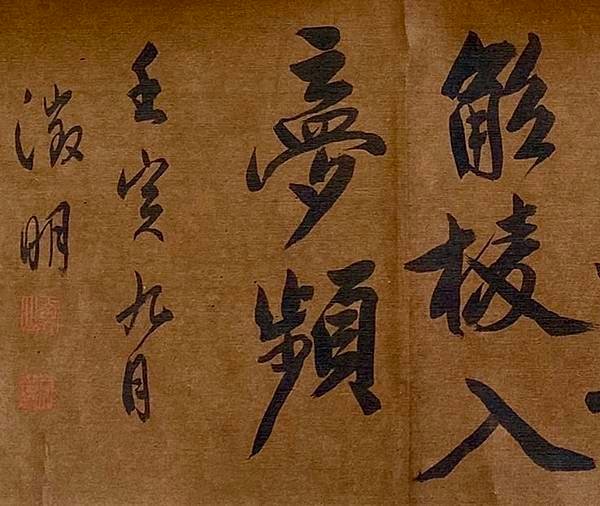 觚棱入
夢頻
壬寅九月
徵明